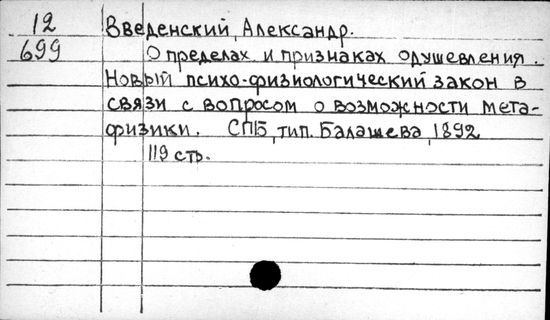 12 Введенский, Александр.
699 О пределах и признаках одушевления.
Новый психо-физиологический закон в
связи с вопросом о возможности мета-
физики. СПБ, тип. Балашева, 1892
119 стр.